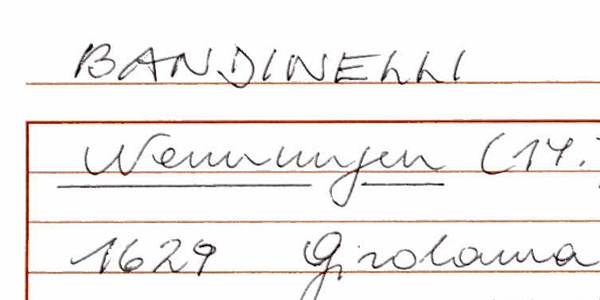 BANDINELLI
Nennungen (14.
1629 Girolama